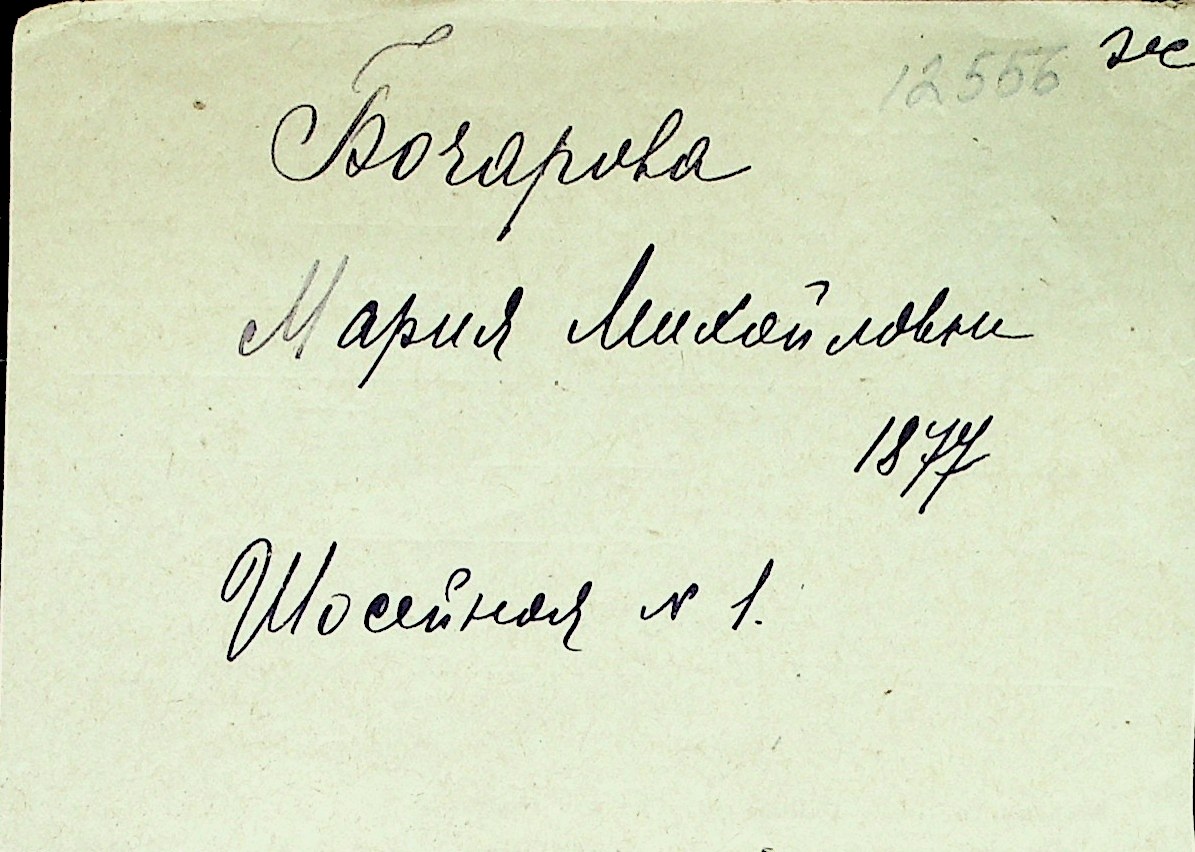 12556 ж
Бочарова
Мария Михайловни
1877
Шосейная N 1.